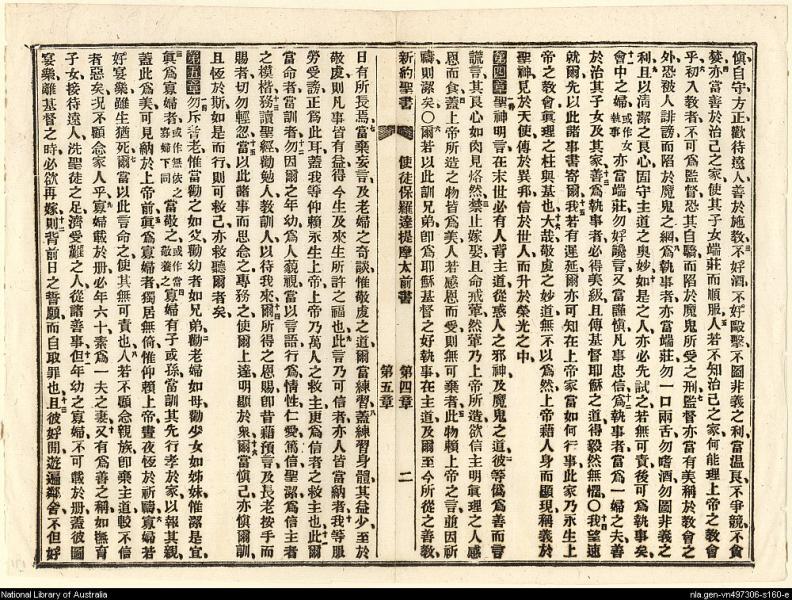 慎自守方正歡待遠人善於施教不好酒不好毆擊不圖非義之利當温良不爭競不貪
婪亦當善於治己之家使其子女端莊而順服人若不知治己之家何能理上帝之教會
乎初入教者不可爲監督恐其自驕而陷於魔鬼所受之刑監督亦當有美稱於教會之
外恐被人誹謗而陷於魔鬼之網爲執事者亦當端莊勿一口兩舌勿嗜酒勿圖非義之
利且以清潔之良心固守主道之奥妙如是之人亦必先試之若無可責後可爲執事矣
會中之婦或作女執事亦當端莊勿好讒言又當謹慎凡事忠信爲執事者當爲一婦之夫善
於治其子女及其家善爲執事者必得美級且傳基督耶穌之道得毅然無懼〇我望速
就爾先以此諸事書寄爾我若有遲延爾亦可知在上帝家當如何行事此家乃永生上
帝之教會眞理之柱與基也大哉敬虔之妙道無不以爲然上帝藉人身而顯現稱義於
聖神見於天使傳於異邦信於世人而升於榮光之中
第四章聖神明言在末世必有人背主道從惑人之邪神及魔鬼之道彼等僞爲善而言
謊言其良心如肉見烙然禁止嫁娶且命戒葷然葷乃上帝所造欲信主明眞理之人感
恩而食蓋上帝所造之物皆爲美人若感恩而受則無可棄者此物賴上帝之言並因祈
禱則潔矣〇爾若以此訓兄弟卽爲耶穌基督之好執事在主道及爾至今所從之善教
新約聖書 使徒保羅達提摩太前書 第四章 第五章 二
日有所長焉當棄妄言及老婦之奇談惟敬虔之道爾當練習蓋練習身體其益少至於
敬虔則凡事皆有益得今生及來生所許之福也此言乃可信者亦人皆當納者我等服
勞受謗正爲此耳蓋我等仰賴永生上帝上帝乃萬人之救主更爲信者之救主也此爾
當命者當訓者勿因爾之年幼爲人藐視當以言語行爲情性仁愛篤信聖潔爲信主者
之模楷務讀聖經勸勉人教訓人以待我來爾所得之恩賜卽昔藉預言及長老按手而
賜者切勿輕忽當以此諸事而思念之專務之使爾上達明顯於衆爾當愼己亦愼爾訓
且恆於斯如是而行則可救己亦救聽爾者矣
第五章勿斥責老惟當勸之如父勸幼者如兄弟勸老婦如母勸少女如姊妹惟潔是宜
眞爲寡婦者或作無依之寡婦下同當敬之或作當敬養之寡婦有子或孫當訓其先行孝於家以報其親
蓋此爲美可見納於上帝前眞爲寡婦者獨居無倚惟仰賴上帝晝夜恆於祈禱寡婦若
好宴樂雖生猶死爾當以此言命之使其無可責也人若不顧念親族卽棄主道較不信
者惡矣况不顧念家人乎寡婦載於册必年六十素爲一夫之妻又有爲善之稱如撫育
子女接待遠人洗聖徒之足濟受難之人從諸善事但年幼之寡婦不可載於册蓋彼圖
宴樂離基督之時必欲再嫁則背前日之誓願而自取罪也且彼好閒遊遍鄰舍不但好
National Library of Australia
nla.gen-vn497306-s160-e